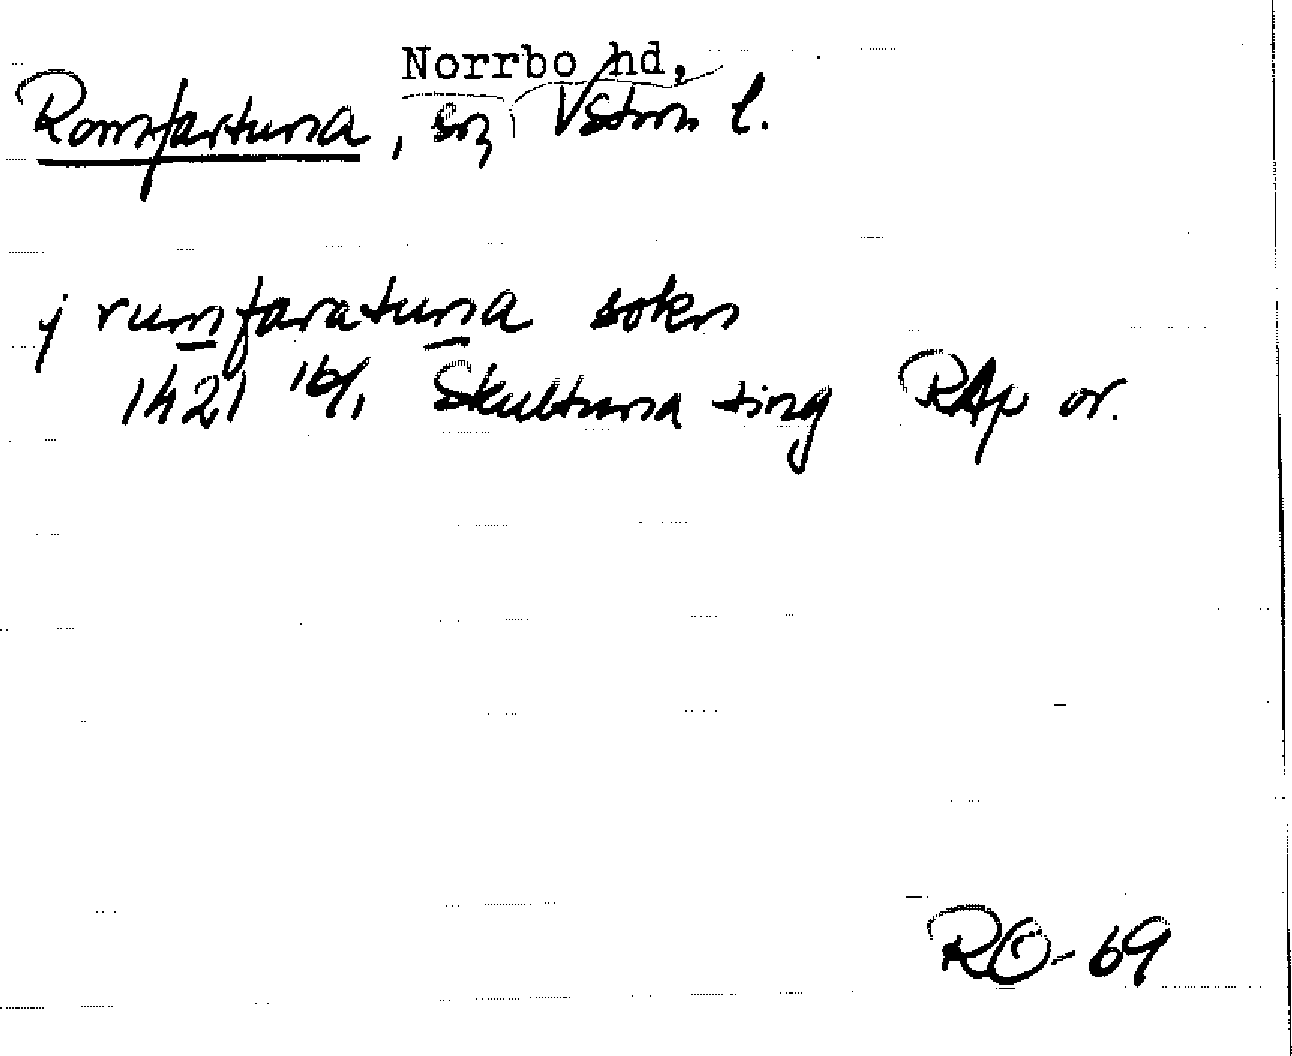 Norrbo hd,
Romfartuna, sn, Vstm l.
j rumfaratuna sokn
1421 16/1 Skultuna ting RAp or.
RO-69